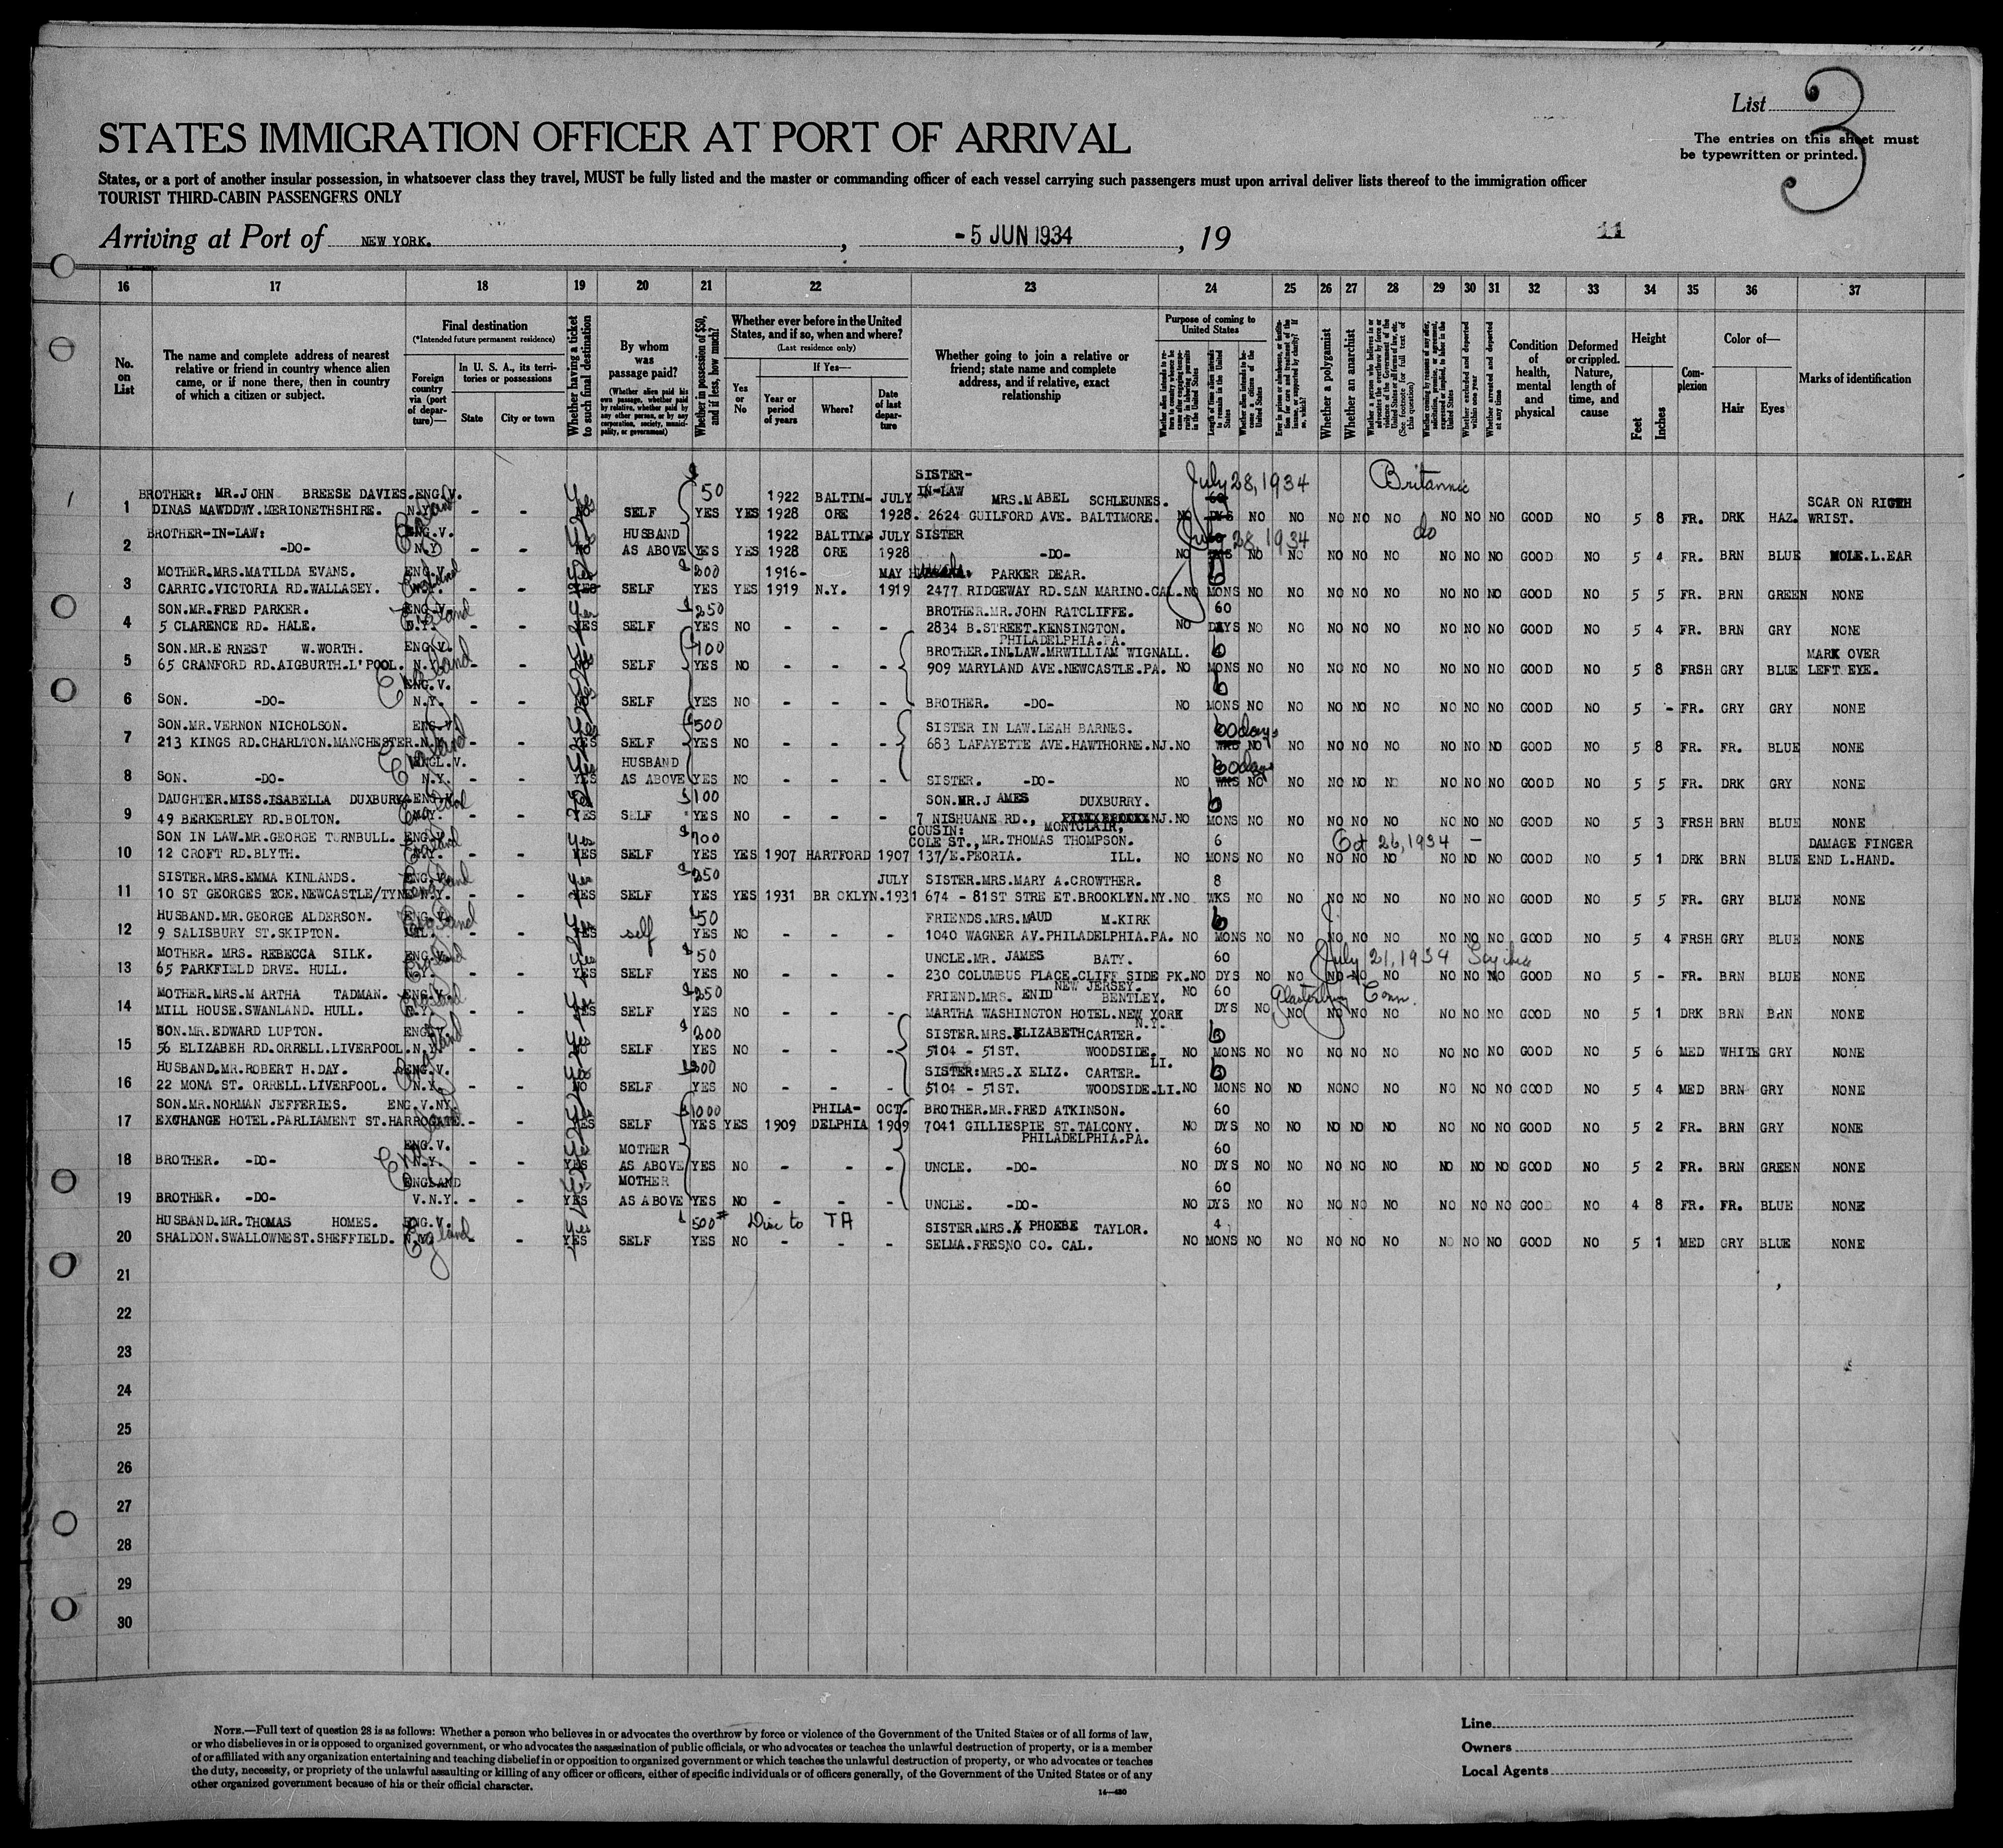 List 3
STATES IMMIGRATION OFFICER AT PORT OF ARRIVAL
The entries on this sheet must
be typewritten or printed.
States, or a port of another insular possession, in whatsoever class they travel, MUST be fully listed and the master or commanding officer of each vessel carrying such passengers must upon arrival deliver lists thereof to the immigration officer
TOURIST THIRD-CABIN PASSENGERS ONLY
Arriving at Port of NEW YORK. , -5 JUN 1934 , 19
11
16 17 18 19 20 21 22 23 24 25 26 27 28 29 30 31 32 33 34 35 36 37
No. on List
The name and complete address of nearest relative or friend in country whence alien came, or if none there, then in country of which a citizen or subject.
Final destination
(*Intended future permanent residence)
Foreign country via (port of departure)—
In U. S. A., its territories or possessions
State
City or town
Whether having a ticket to such final destination
By whom was passage paid?
(Whether alien paid his own passage, whether paid by relative, whether paid by any other person, or by any corporation, society, municipality, or government)
Whether in possession of $50, and if less, how much?
Whether ever before in the United States, and if so, when and where?
(Last residence only)
Yes or No
If Yes—
Year or period of years
Where?
Date of last departure
Whether going to join a relative or friend; state name and complete address, and if relative, exact relationship
Purpose of coming to United States
Length of time alien intends to remain in the United States
Whether alien intends to become a citizen of the United States
Whether a polygamist
Whether an anarchist
Whether excluded and deported within one year
Whether arrested and deported at any time
Condition of health, mental and physical
Deformed or crippled. Nature, length of time, and cause
Height
Feet
Inches
Complexion
Color of—
Hair
Eyes
Marks of identification
SISTER- July 28, 1934 Britannic
BROTHER: MR.JOHN BREESE DAVIES.ENG.V. 50 1922 BALTIM- JULY IN-LAW MRS.MABEL SCHLEUNES. 60 SCAR ON RIGTH
1 DINAS MAWDDWY.MERIONETHSHIRE. N.Y. - - NO SELF YES YES 1928 ORE 1928. 2624 GUILFORD AVE. BALTIMORE. NO DYS NO NO NO NO NO NO NO NO GOOD NO 5 8 FR. DRK HAZ. WRIST.
BROTHER-IN-LAW: ENG.V. HUSBAND 1922 BALTIM JULY SISTER July 28, 1934 do
2 -DO- N.Y - - NO AS ABOVE YES YES 1928 ORE 1928 -DO- NO DYS NO NO NO NO NO NO NO NO GOOD NO 5 4 FR. BRN BLUE MOLE.L.EAR
MOTHER.MRS.MATILDA EVANS. ENG.V. $200 1916- MAY PARKER DEAR. 6
3 CARRIC.VICTORIA RD.WALLASEY. N.Y. - - YES SELF YES YES 1919 N.Y. 1919 2477 RIDGEWAY RD.SAN MARINO.CAL. NO MONS NO NO NO NO NO NO NO NO GOOD NO 5 5 FR. BRN GREEN NONE
SON.MR.FRED PARKER. ENG.V. $250 BROTHER.MR.JOHN RATCLIFFE. 60
4 5 CLARENCE RD. HALE. N.Y. - - YES SELF YES NO - - - 2834 B.STREET.KENSINGTON. NO DAYS NO NO NO NO NO NO NO NO GOOD NO 5 4 FR. BRN GRY NONE
PHILADELPHIA.PA.
SON.MR.ERNEST W.WORTH. ENG.V. 400 BROTHER.IN.LAW.MRWILLIAM WIGNALL. 6 MARK OVER
5 65 CRANFORD RD.AIGBURTH.L'POOL. N.Y. - - NO SELF YES NO - - - 909 MARYLAND AVE.NEWCASTLE.PA. NO MONS NO NO NO NO NO NO NO NO GOOD NO 5 8 FRSH GRY BLUE LEFT EYE.
ENG.V. 6
6 SON. -DO- N.Y. - - NO SELF YES NO - - - BROTHER. -DO- NO MONS NO NO NO NO NO NO NO NO GOOD NO 5 - FR. GRY GRY NONE
SON.MR.VERNON NICHOLSON. ENG.V. $500 SISTER IN LAW.LEAH BARNES. 60 days
7 213 KINGS RD.CHARLTON.MANCHESTER.N.Y. - - YES SELF YES NO - - - 683 LAFAYETTE AVE.HAWTHORNE.NJ. NO WKS NO NO NO NO NO NO NO NO GOOD NO 5 8 FR. FR. BLUE NONE
ENGL.V. HUSBAND 60 days
8 SON. -DO- N.Y. - - YES AS ABOVE YES NO - - - SISTER. -DO- NO WKS NO NO NO NO NO NO NO NO GOOD NO 5 5 FR. DRK GRY NONE
DAUGHTER.MISS.ISABELLA DUXBURY. ENG.V. $100 SON.MR.JAMES DUXBURRY. 6
9 49 BERKERLEY RD.BOLTON. N.Y. - - YES SELF YES NO - - - 7 NISHUANE RD., NJ. NO MONS NO NO NO NO NO NO NO NO GOOD NO 5 3 FRSH BRN BLUE NONE
COUSIN: MONTCLAIR,
SON IN LAW.MR.GEORGE TURNBULL. ENG.V. $700 COLE ST., MR.THOMAS THOMPSON. 6 Oct 26, 1934 — DAMAGE FINGER
10 12 CROFT RD.BLYTH. N.Y. - - YES SELF YES YES 1907 HARTFORD 1907 137/E.PEORIA. ILL. NO MONS NO NO NO NO NO NO NO NO GOOD NO 5 1 DRK BRN BLUE END L.HAND.
SISTER.MRS.EMMA KINLANDS. ENG.V. $250 JULY SISTER.MRS.MARY A.CROWTHER. 8
11 10 ST GEORGES TCE.NEWCASTLE/TYNE N.Y. - - YES SELF YES YES 1931 BR OKLYN. 1931 674 - 81ST STRE ET.BROOKLYN.NY. NO WKS NO NO NO NO NO NO NO NO GOOD NO 5 5 FR. GRY BLUE NONE
HUSBAND.MR.GEORGE ALDERSON. ENG.V. $50 FRIENDS.MRS.MAUD M.KIRK 6
12 9 SALISBURY ST.SKIPTON. - - YES self YES NO - - - 1040 WAGNER AV.PHILADELPHIA.PA. NO MONS NO NO NO NO NO NO NO NO GOOD NO 5 4 FRSH GRY BLUE NONE
MOTHER. MRS. REBECCA SILK. ENG.V. $50 UNCLE.MR. JAMES BATY. 60 July 21, 1934
13 65 PARKFIELD DRVE. HULL. N.Y. - - YES SELF YES NO - - - 230 COLUMBUS PLACE.CLIFF SIDE PK. NO DYS NO NO NO NO NO NO NO NO GOOD NO 5 - FR. BRN BLUE NONE
NEW JERSEY.
MOTHER.MRS.MARTHA TADMAN. ENG.V. $250 FRIEND.MRS. ENID BENTLEY. NO 60 Glastonbury Conn.
14 MILL HOUSE.SWANLAND. HULL. N.Y. - - YES SELF YES NO - - - MARTHA WASHINGTON HOTEL.NEW YORK DYS NO NO NO NO NO NO NO NO GOOD NO 5 1 DRK BRN BRN NONE
N.Y.
SON.MR.EDWARD LUPTON. ENG.V. $200 SISTER.MRS.ELIZABETH CARTER. 6
15 56 ELIZABEH RD.ORRELL.LIVERPOOL.N.Y. - - NO SELF YES NO - - - 5104 - 51ST. WOODSIDE. NO MONS NO NO NO NO NO NO NO NO GOOD NO 5 6 MED WHITE GRY NONE
LI.
HUSBAND.MR.ROBERT H.DAY. ENG.V. $300 SISTER:MRS.X ELIZ. CARTER. 6
16 22 MONA ST. ORRELL.LIVERPOOL. N.Y. - - NO SELF YES NO - - - 5104 - 51ST. WOODSIDE.LI. NO MONS NO NO NO NO NO NO NO NO GOOD NO 5 4 MED BRN GRY NONE
SON.MR.NORMAN JEFFERIES. ENG.V.NY. $1000 PHILA- OCT. BROTHER.MR.FRED ATKINSON. 60
17 EXCHANGE HOTEL.PARLIAMENT ST.HARROGATE. - - YES SELF YES YES 1909 DELPHIA 1909 7041 GILLIESPIE ST.TALCONY. NO DYS NO NO NO NO NO NO NO NO GOOD NO 5 2 FR. BRN GRY NONE
PHILADELPHIA.PA.
ENG.V. MOTHER 60
18 BROTHER. -DO- N.Y. - - YES AS ABOVE YES NO - - - UNCLE. -DO- NO DYS NO NO NO NO NO NO NO NO GOOD NO 5 2 FR. BRN GREEN NONE
ENGLAND MOTHER 60
19 BROTHER. -DO- V.N.Y. - - YES AS ABOVE YES NO - - - UNCLE. -DO- NO DYS NO NO NO NO NO NO NO NO GOOD NO 4 8 FR. FR. BLUE NONE
HUSBAND.MR.THOMAS HOMES. ENG.V. $500 Disc to TA SISTER.MRS.X PHOEBE TAYLOR. 4
20 SHALDON.SWALLOWNEST.SHEFFIELD. N.Y. - - YES SELF YES NO - - - SELMA.FRESNO CO. CAL. NO MONS NO NO NO NO NO NO NO NO GOOD NO 5 1 MED GRY BLUE NONE
21
22
23
24
25
26
27
28
29
30
NOTE.—Full text of question 28 is as follows: Whether a person who believes in or advocates the overthrow by force or violence of the Government of the United States or of all forms of law,
or who disbelieves in or is opposed to organized government, or who advocates the assassination of public officials, or who advocates or teaches the unlawful destruction of property, or is a member
of or affiliated with any organization entertaining and teaching disbelief in or opposition to organized government or which teaches the unlawful destruction of property, or who advocates or teaches
the duty, necessity, or propriety of the unlawful assaulting or killing of any officer or officers, either of specific individuals or of officers generally, of the Government of the United States or of any
other organized government because of his or their official character.
14—480
Line
Owners
Local Agents